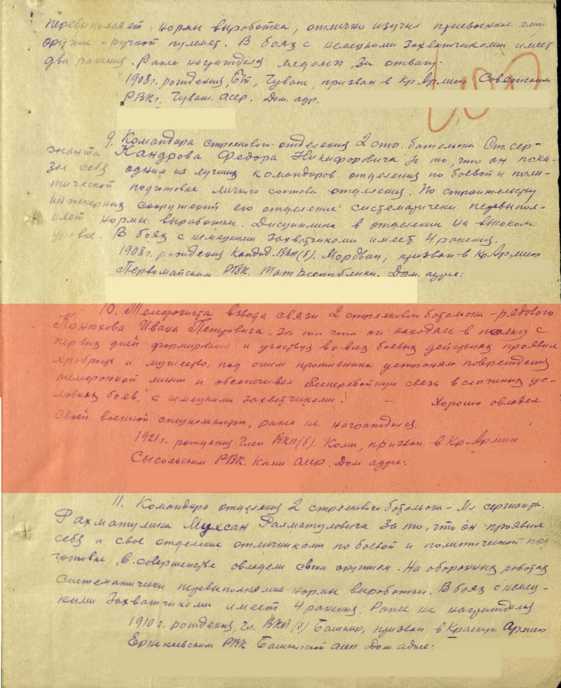 перевыполняет нормы выработки, отлично изучил
оружие - ручной пулемет. В боях с немецкими захватчиками имеет
два ранения. Ранее награжден медалью За отвагу.
1908 г. рождения, б/п, Чуваш, призван в Кр. Армию Советским
РВК, Чуваш. асср. Дом. адр.
9. Командира стрелкового отделения 2 отр. батальона Ст. сер-
жанта Кандрова Федора Никифоровича За то, что он пока-
зал себя одним из лучших командиров отделения по боевой и поли-
тической подготовке личного состава отделения. По строительству
инженерных сооружений его отделение систематически перевыпол-
няет нормы выработки. Дисциплина в отделении на высоком
уровне. В боях с немецкими захватчиками имеет 4 ранения.
1908 г. рождения Кандид. ВКП(б). Мордвин, призван в Кр. Армию
Первомайским РВК Тат. республики. Дом. адрес:
10. Телефониста взвода связи 2 стрелкового батальона - рядового
Ивана Петровича. За то что он находясь в полку с
первых дней формирования и участвуя во всех боевых действиях проявил
храбрость и мужество, под огнем противника устранял повреждения
телефонной линии и обеспечивал бесперебойную связь в сложных ус-
ловиях боев, с немецкими захватчиками! Хорошо овладел
своей военной специальностью, ранее не награждался.
1921 г. рождения, член ВКП(б). Коми, призван в Кр. Армию
Сысольским РВК. Коми асср. Дом. адрес:
11. Командира отделения 2 стрелкового батальона - Мл. сержанта
Рахматулина За то, что он проявил
себя и свое отделение отличником по боевой и политической под-
готовке, в совершенстве овладел своим оружием. На оборонных работах
систематически перевыполнял нормы выработки. В боях с немец-
кими захватчиками имеет 4 ранения. Ранее не награждался
1910 г. рождения, чл. ВКП(б) Башкир, призван в Красную Армию
РВК Башкирской асср. Дом. адрес: